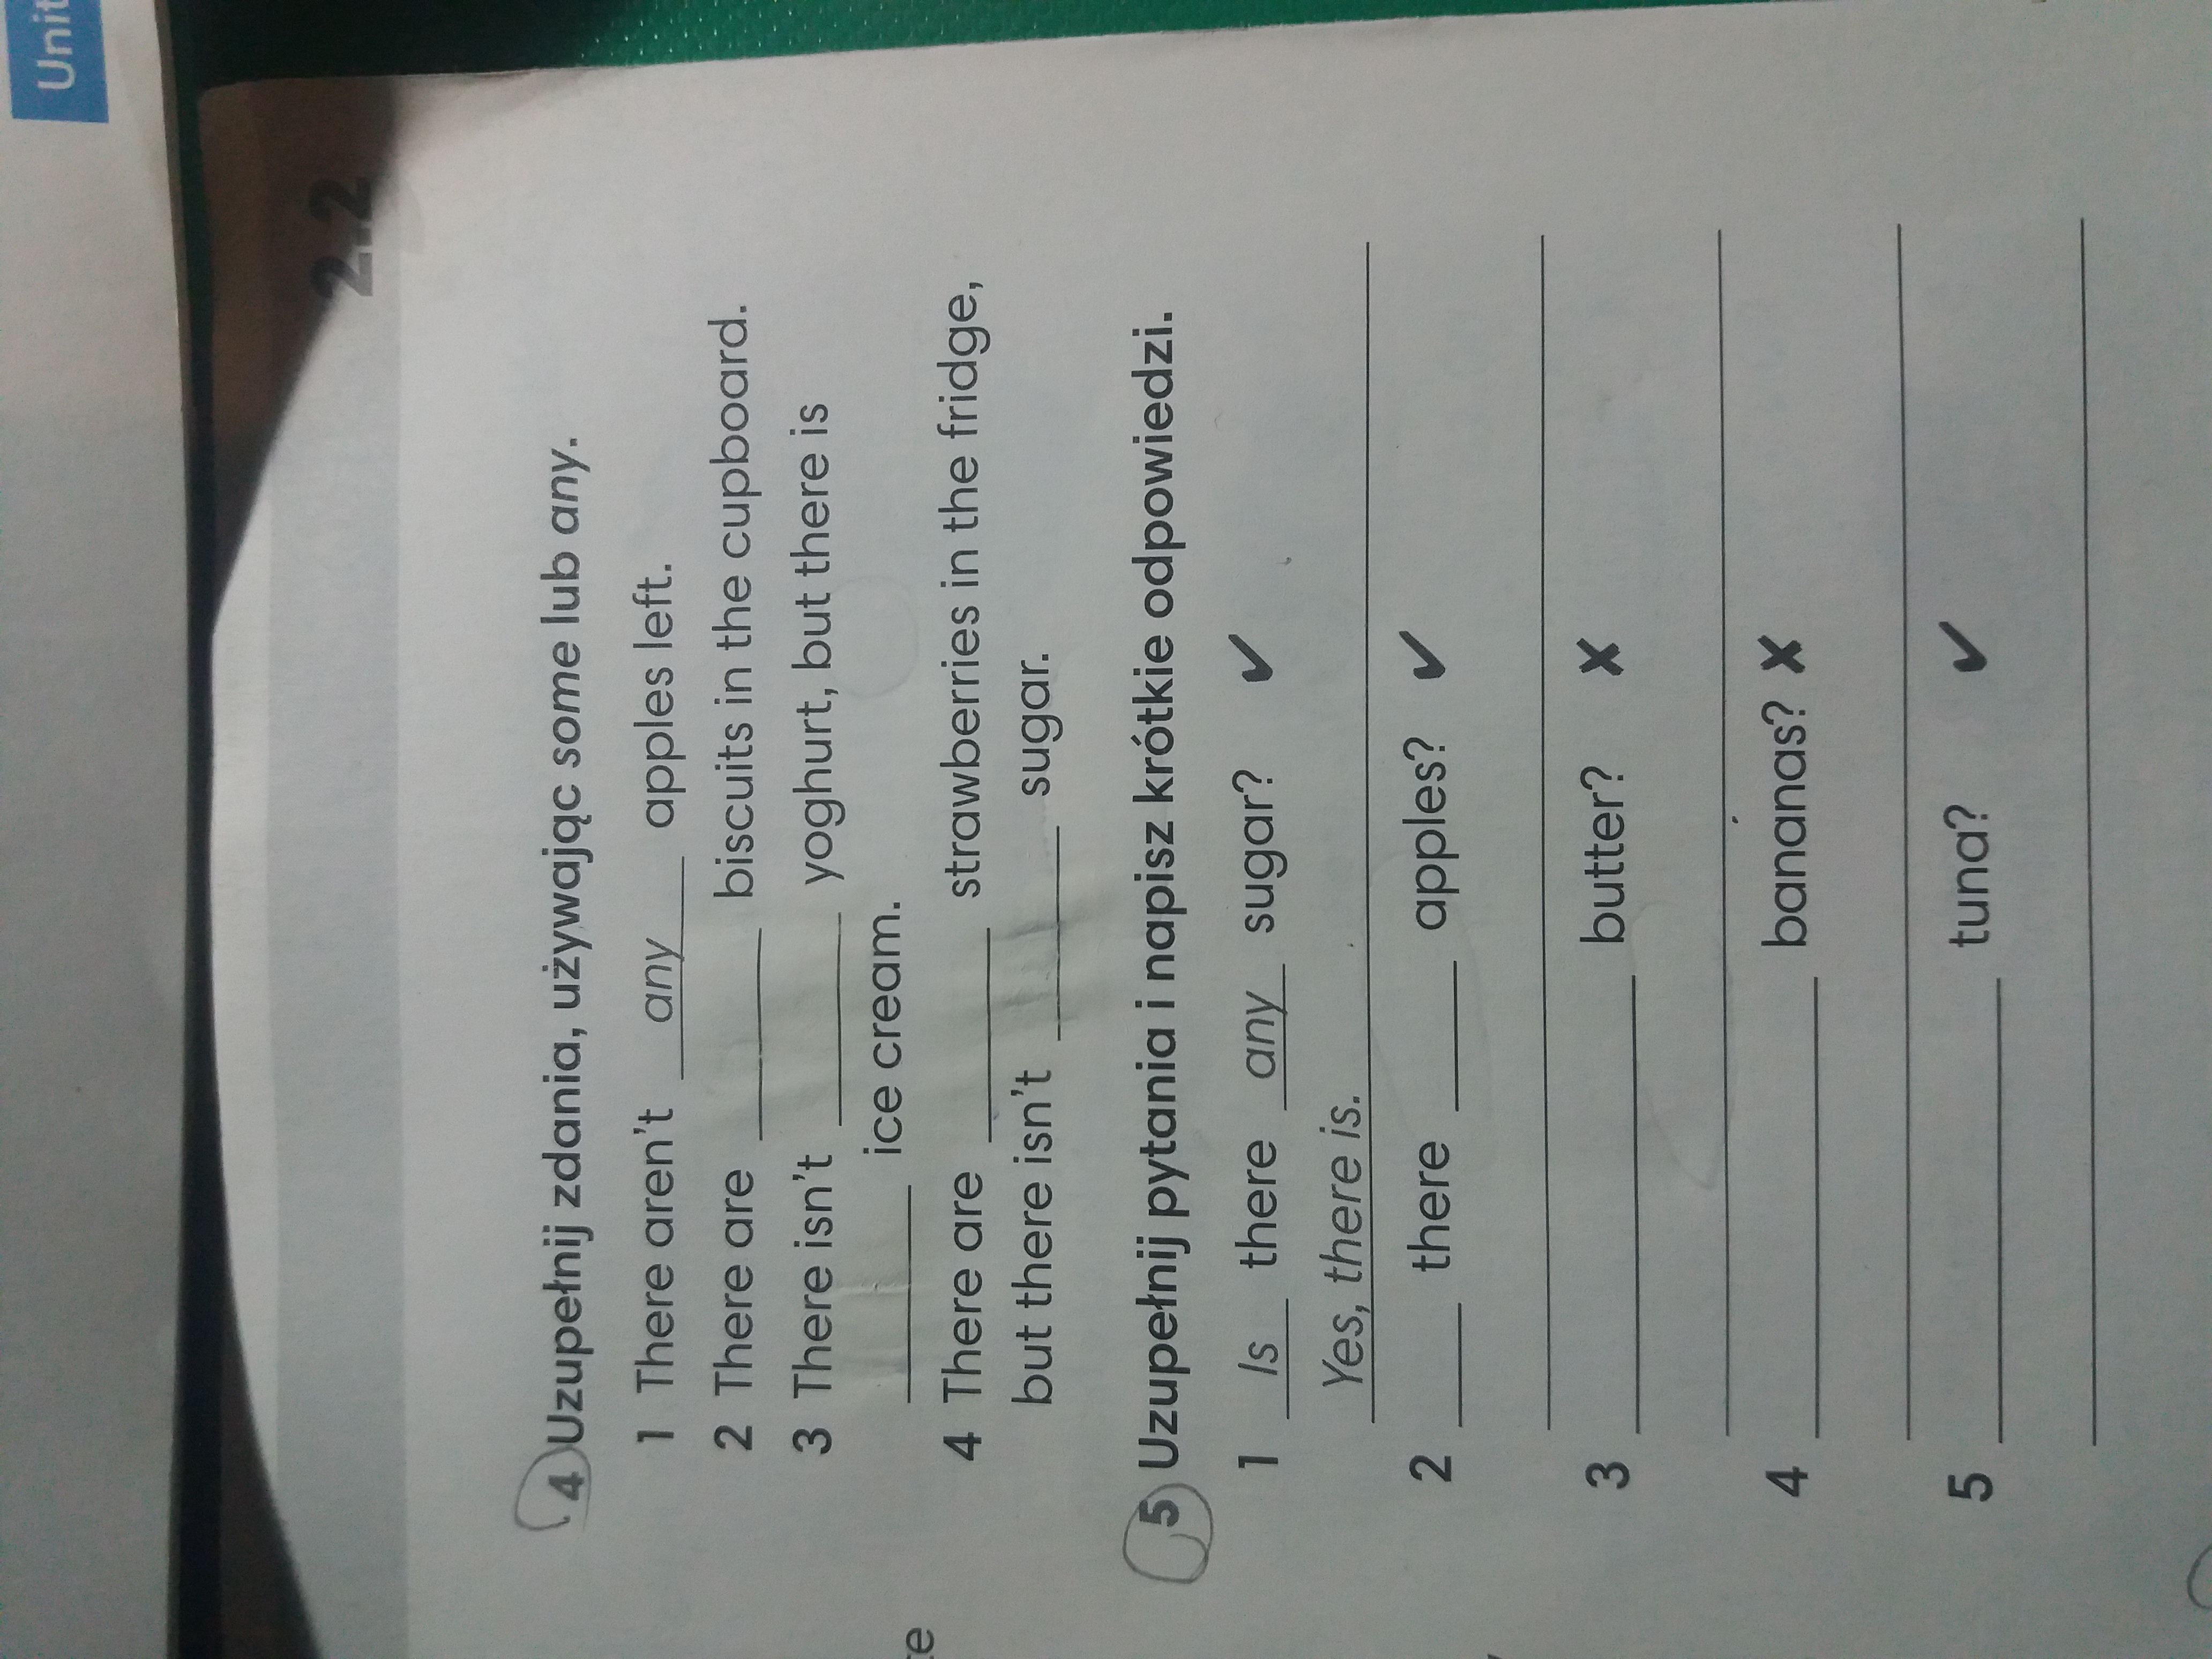 Unit
2.2
4 Uzupełnij zdania, używając some lub any.
1 There aren't any apples left.
2 There are ________ biscuits in the cupboard.
3 There isn't ________ yoghurt, but there is
________ ice cream.
4 There are ________ strawberries in the fridge,
but there isn't ________ sugar.
5 Uzupełnij pytania i napisz krótkie odpowiedzi.
1 Is there any sugar? ✔
Yes, there is.
2 ____ there ____ apples? ✔
3 ________ butter? ✘
4 ________ bananas? ✘
5 ________ tuna? ✔